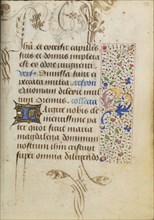 et extersit capillis
suis et domus impleta
est ex odore unguenti
Dimissa sunt ei
peccata multa
Quoniam dilexit mul
tum Oremus collecta
Largire nobis cle
mentissime pa
ter quod sicut maria
magdalena dominum
nostrum
super omnia diligendo